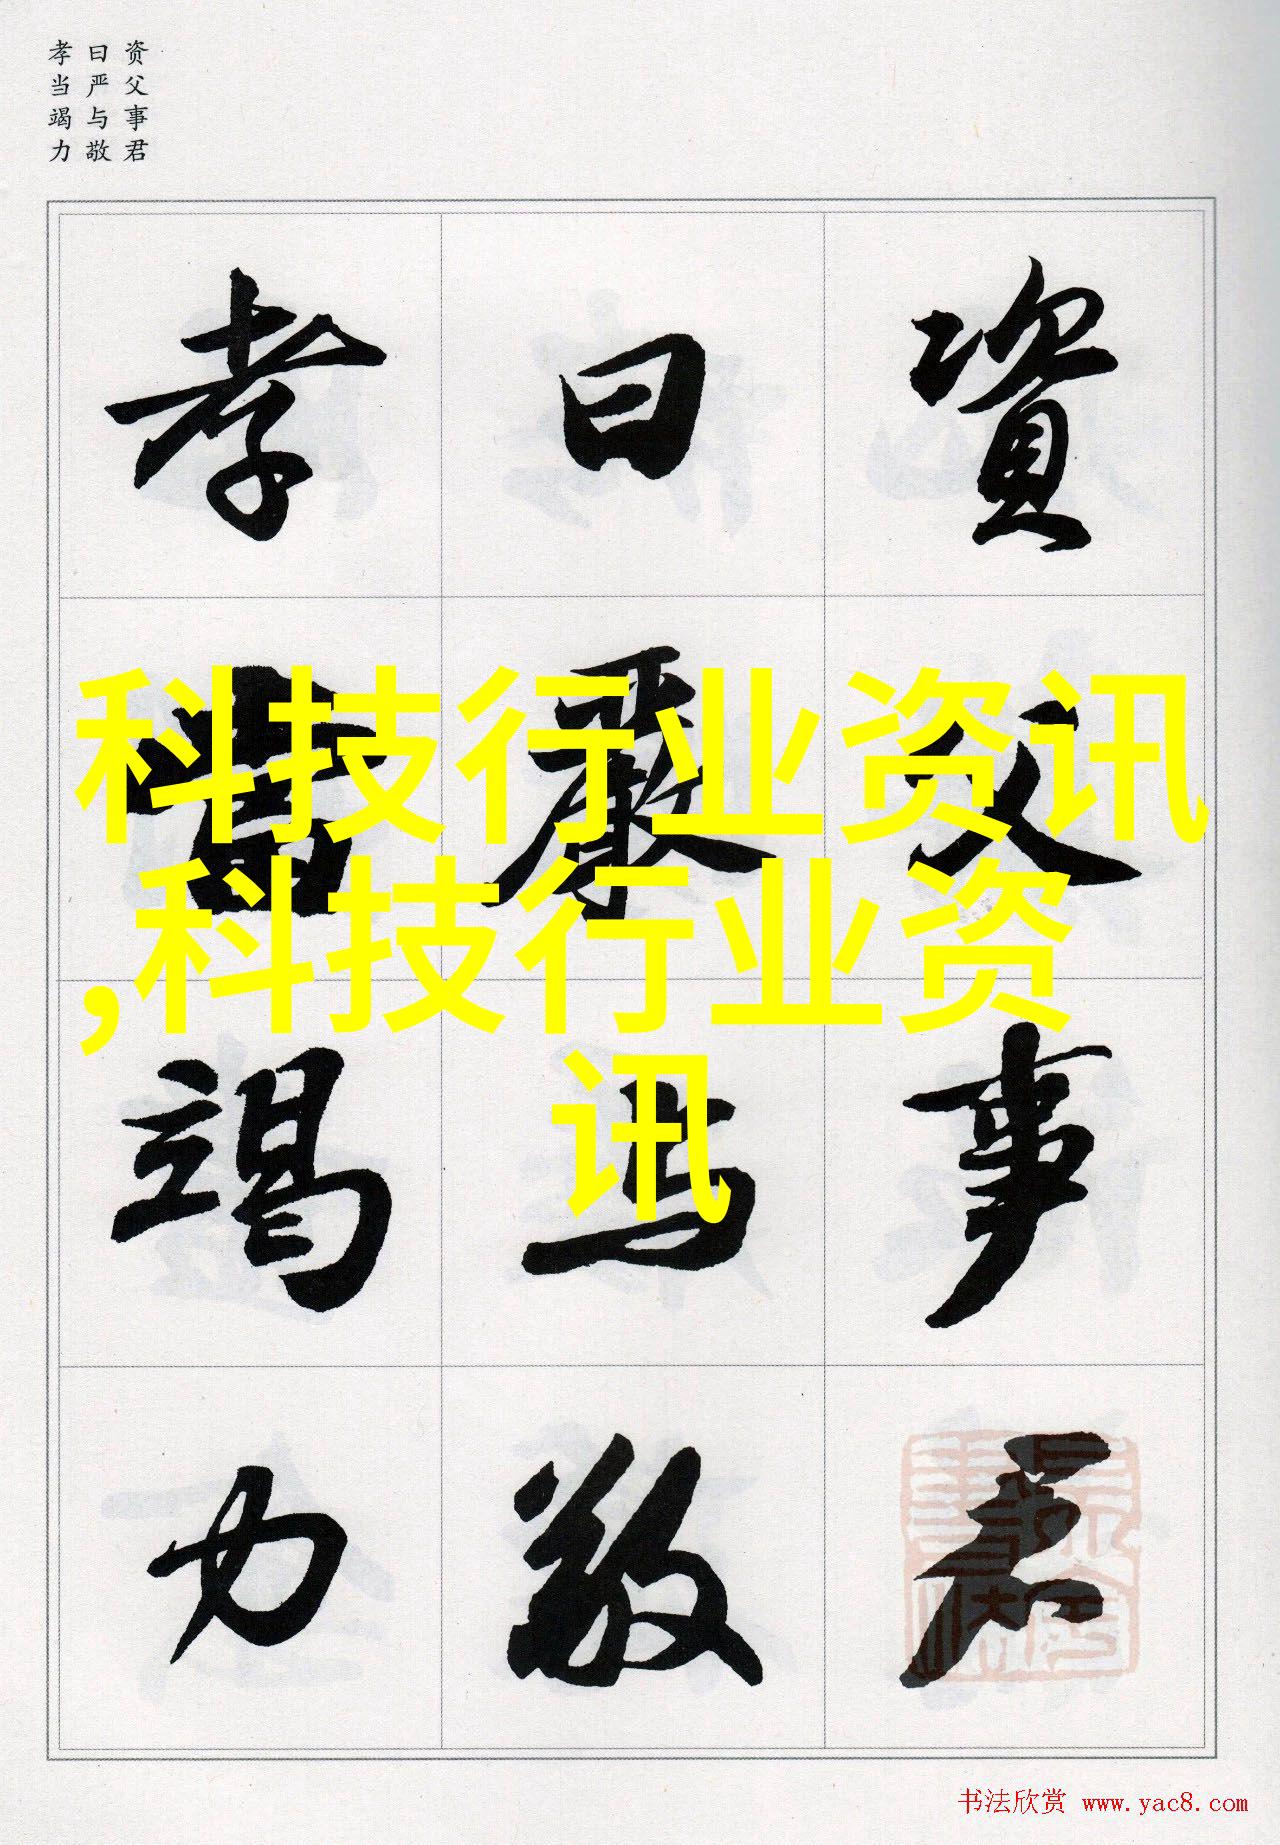 资父事君
曰严与敬
孝当竭力
資父事君
曰嚴与敬
孝當竭力
科技行业资讯
,科技行业资
讯
书法欣赏 www.yac8.com